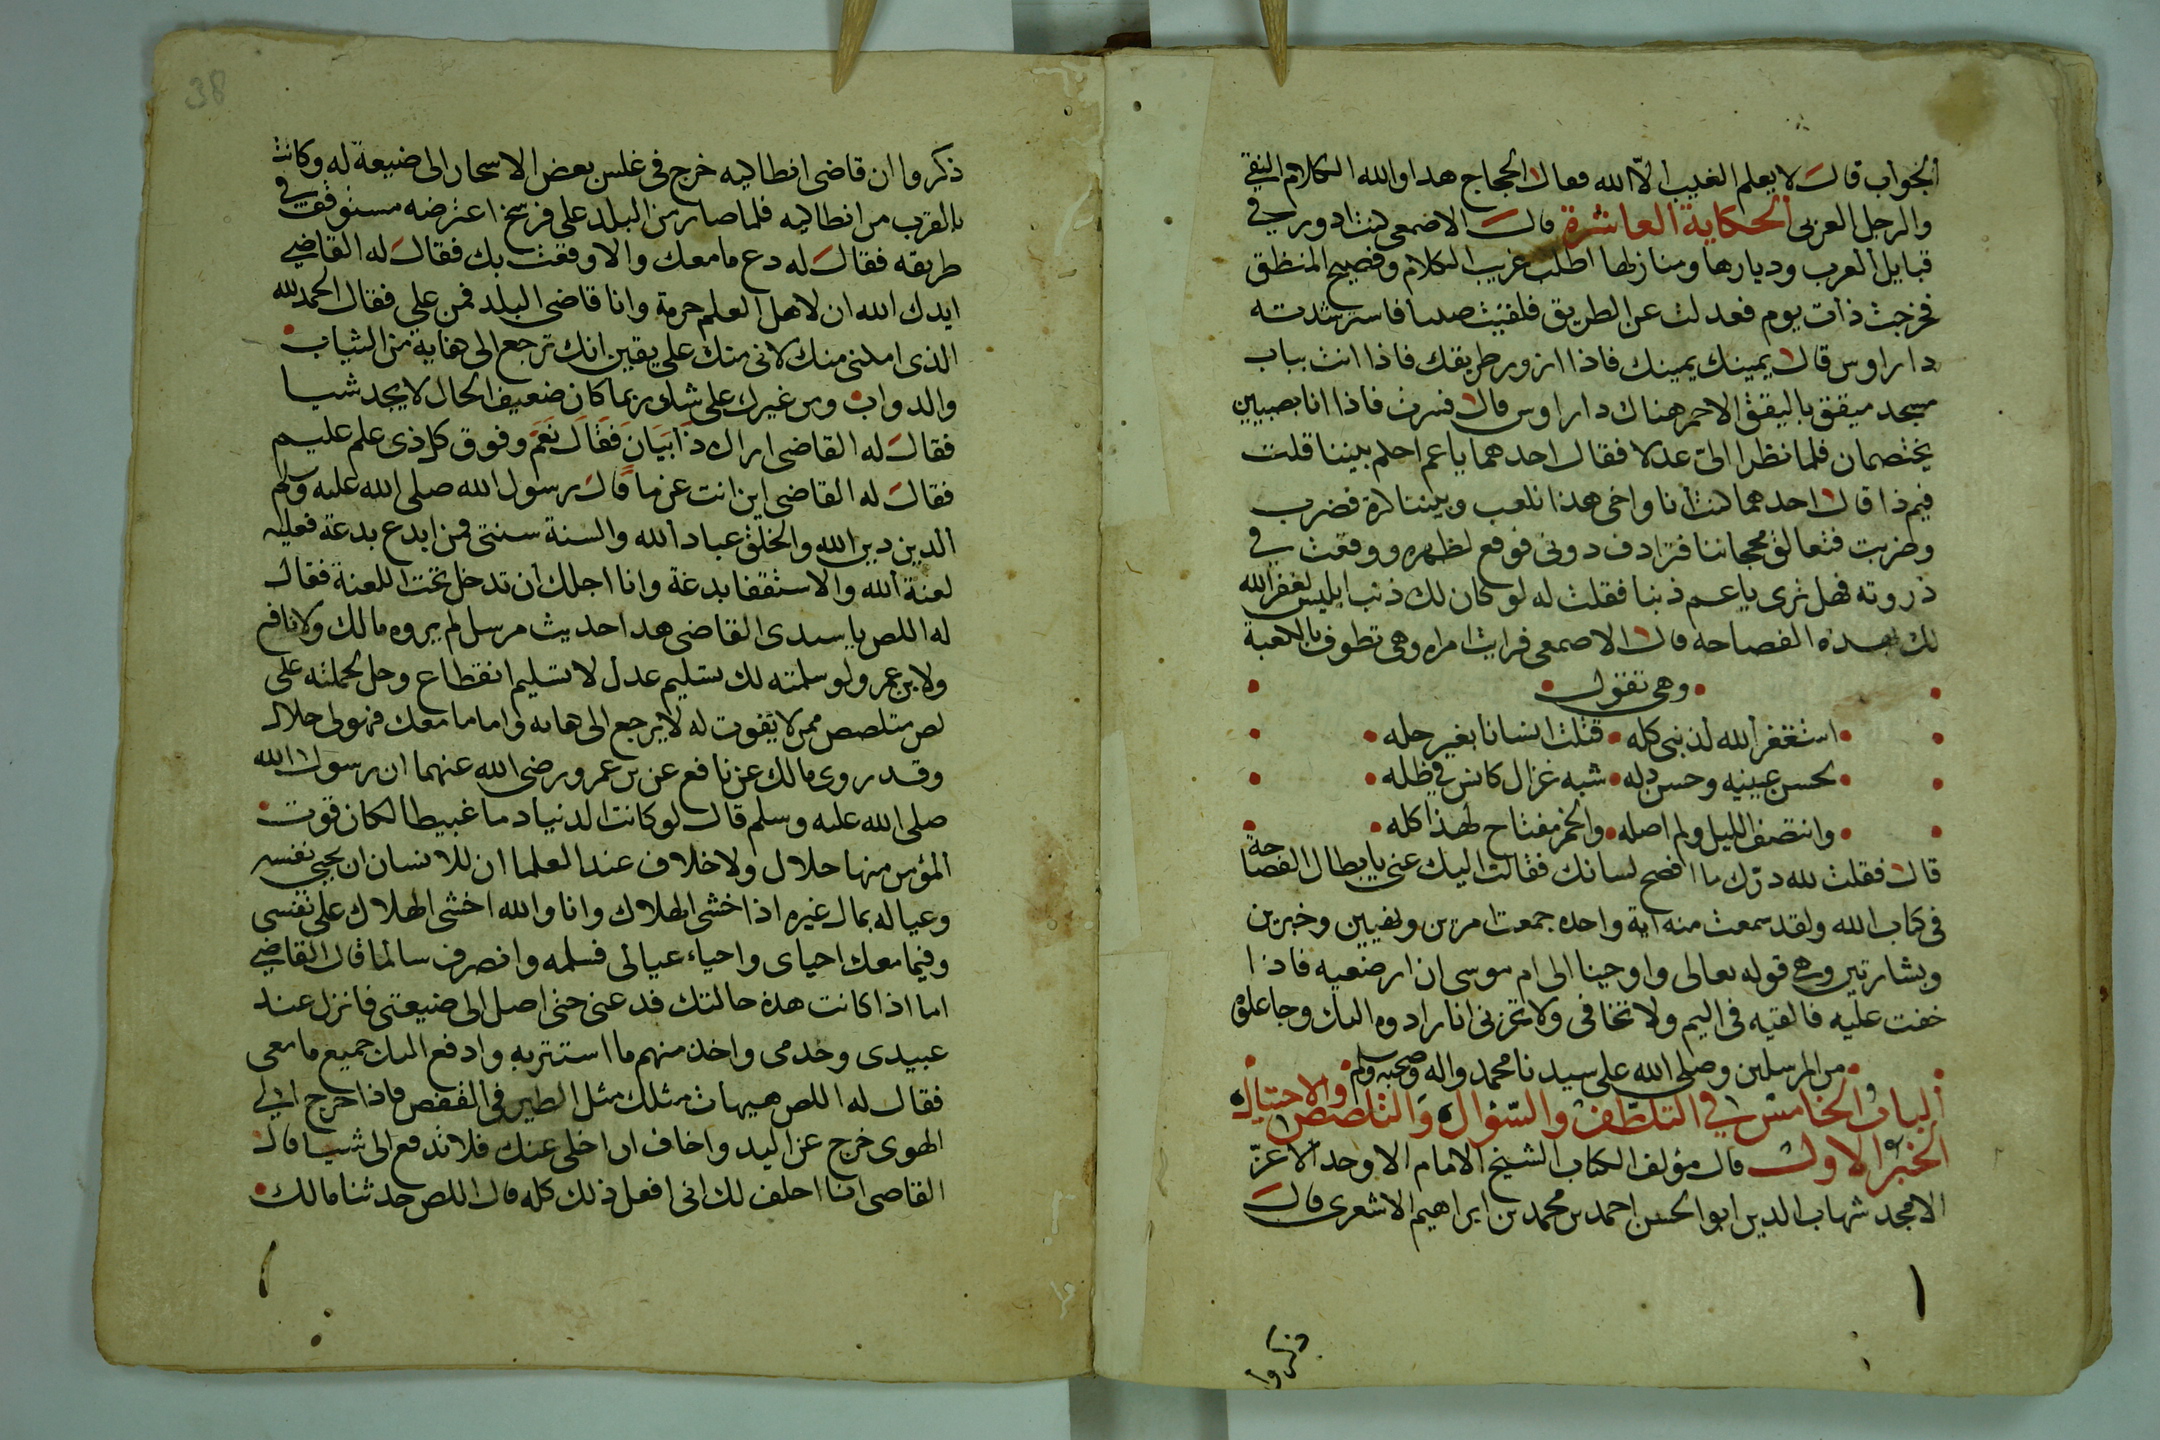 الجواب قال لا يعلم الغيب الّا الله فقال الحجاج هدا والله الكلام النقي
والرجل العربى الحكاية العاشرة قال الاصمعى كنت ادور في
قبايل العرب وديارها ومنازلها اطلب غريب الكلام وفصيح المنطق
فخرجت ذات يوم فعدلت عن الطريق فلقيت صبيا فاسترشدته
دار اوس قال يمينك يمينك فاذا ازور طريقك فاذا انت بباب
مسجد ميقق باليقق الاحمر هناك دار اوس قال فسرت فاذا انا بصبيين
يختصمان فلما نظرا الىّ عدلا فقال احدهما يا عم احلم بيننا قلت
فيم ذا قال احدهما كنت أنا واخى هذا نلعب وبيننا كرة فضرب
وضربت فتعالق محجاننا فترادف دونى فوقع لظهره ووقعت في
ذروته فهل ترى يا عم ذنبا فقلت له لو كان لك ذنب ابليس لغفر الله
لك بهذه الفصاحه قال الاصمعى فرايت امراه وهى تطوف بالكعبة
وهى تقول
استغفر الله لذنبى كله قتلت انسانا بغير حله
بحسن عينيه وحسن دله شبه غزال كانس في ظله
وانتصف الليل ولم اصله والخمر مفتاح لهذا كله
قال فقلت لله درّك ما افصح لسانك فقالت اليك عنى يا بطال الفصاحة
فى كتاب الله ولقد سمعت منه اية واحده جمعت امرين ونهيين وخبرين
وبشارتين وهي قوله تعالى واوحينا الى ام موسى ان ارضعيه فاذا
خفت عليه فالقيه فى اليم ولا تخافى ولا تحزنى انا رادوه اليك وجاعلوه
من المرسلين وصلى الله على سيدنا محمد واله وصحبه وسلم
الباب الخامس في التلطّف والسّؤال والتلصص والاحتيال
الخبر الاول قال مؤلف الكتاب الشيخ الامام الاوحد الاعزّ
الامجد شهاب الدين ابو الحسن احمد بن محمد بن ابراهيم الاشعرى قال
ذكروا
38
ذكروا ان قاضى انطاليه خرج فى غلس بعض الاسحار الى ضيعة له وكانت
بالقرب من انطاليه فلما صار من البلد على فرسخ اعترضه مستوقف في
طريقه فقال له دع ما معك والا وقعت بك فقال له القاضي
ايدك الله ان لاهل العلم حرمة وانا قاضى البلد فمن على فقال الحمد لله
الذى امكننى منك لانى منك على يقين انك ترجع الى هناية من الثياب
والدواب ومن غيرك على شك ربما كان ضعيف الحال لا يجد شيا
فقال له القاضى اراك ذا بيان فقال نعم وفوق كل ذى علم عليم
فقال له القاضى اين انت عن ما قال رسول الله صلى الله عليه وسلم
الدين دين الله والخلق عباد الله والسنة سنتى فمن ابدع بدعة فعليه
لعنة الله والاستقفا بدعة وانا اجلك أن تدخل تحت اللعنة فقال
له اللص يا سيدى القاضى هدا حديث مرسل لم يروه مالك ولا نافع
ولا بن عمر ولو سلمته لك تسليم عدل لا تسليم انقطاع وحل لحملته على
لص متلصص ممن لا يقوت له لا يرجع الى هنايه واما ما معك فهو لى حلال
وقد روى مالك عن نافع عن بن عمر ورضى الله عنهما ان رسول الله
صلى الله عليه وسلم قال لو كانت الدنيا دما غبيطا لكان قوت
المؤمن منها حلال ولا خلاف عند العلما ان للانسان ان يحيي نفسه
وعياله بمال غيره اذا خشى الهلاك وانا والله اخشى الهلاك على نفسى
وفيما معك احياى واحياء عيالى فسلمه وانصرف سالما قال القاضي
اما اذا كانت هذة حالتك فدعنى حتى اصل الى ضيعتى فانزل عند
عبيدى وخدمى واخذ منهم ما استتر به وادفع اليك جميع ما معى
فقال له اللص هيهات مثلك مثل الطير فى القفص فاذا خرج الي
الهوى خرج عن اليد واخاف ان اخلى عنك فلا تدفع الى شيا قال
القاضى انا احلف لك انى افعل ذلك كله قال اللص حدثنا مالك